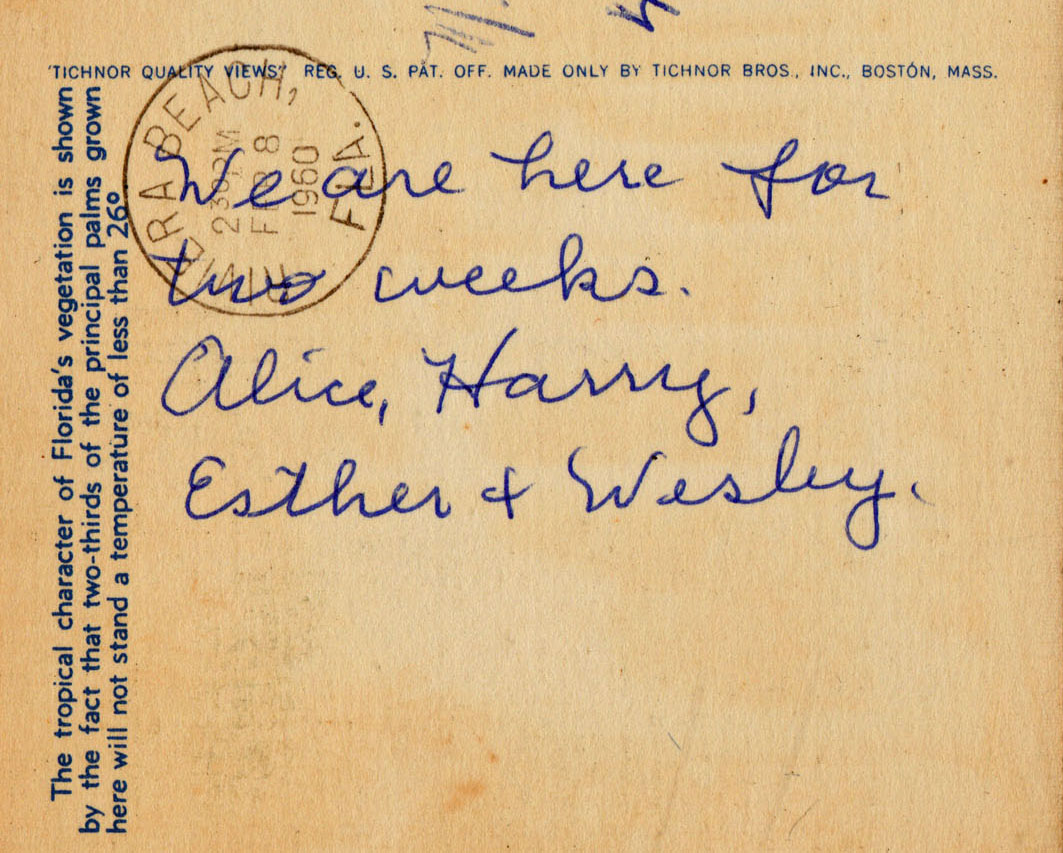 "TICHNOR QUALITY VIEWS" REG. U. S. PAT. OFF. MADE ONLY BY TICHNOR BROS., INC., BOSTON, MASS.
The tropical character of Florida's vegetation is shown
by the fact that two-thirds of the principal palms grown
here will not stand a temperature of less than 26°
RIVIERA BEACH, FLA.
230PM
FEB 8
1960
We are here for
two weeks.
Alice, Harry,
Esther + Wesley.